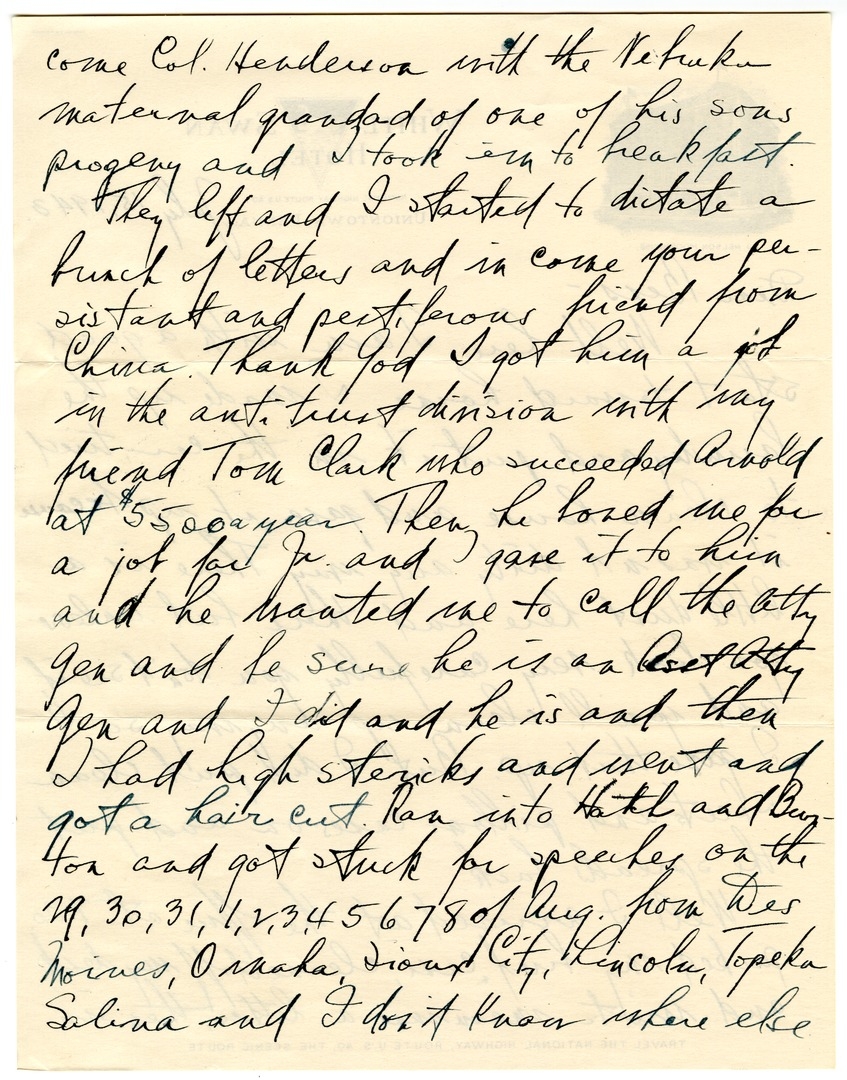 come Col. Henderson with the Nebraska
maternal grandad of one of his sons
progeny and I took em to breakfast.
They left and I started to dictate a
bunch of letters and in come your per-
sistant and pestiferous friend from
China. Thank God I got him a job
in the antitrust division with my
friend Tom Clark who succeeded Arnold
at $5500 a year. Then, he bored me for
a job for Jr. and I gave it to him
and he wanted me to call the Atty
Gen and be sure he is an Asst Atty
Gen and I did and he is and then
I had high stericks and went and
got a hair cut. Ran into Hatch and Bur-
ton and got stuck for speeches on the
29, 30, 31, 1, 2, 3 4 5 6 7 8 of Aug. from Des
Moines, Omaha, Sioux City, Lincoln, Topeka
Salina and I don't know where else.